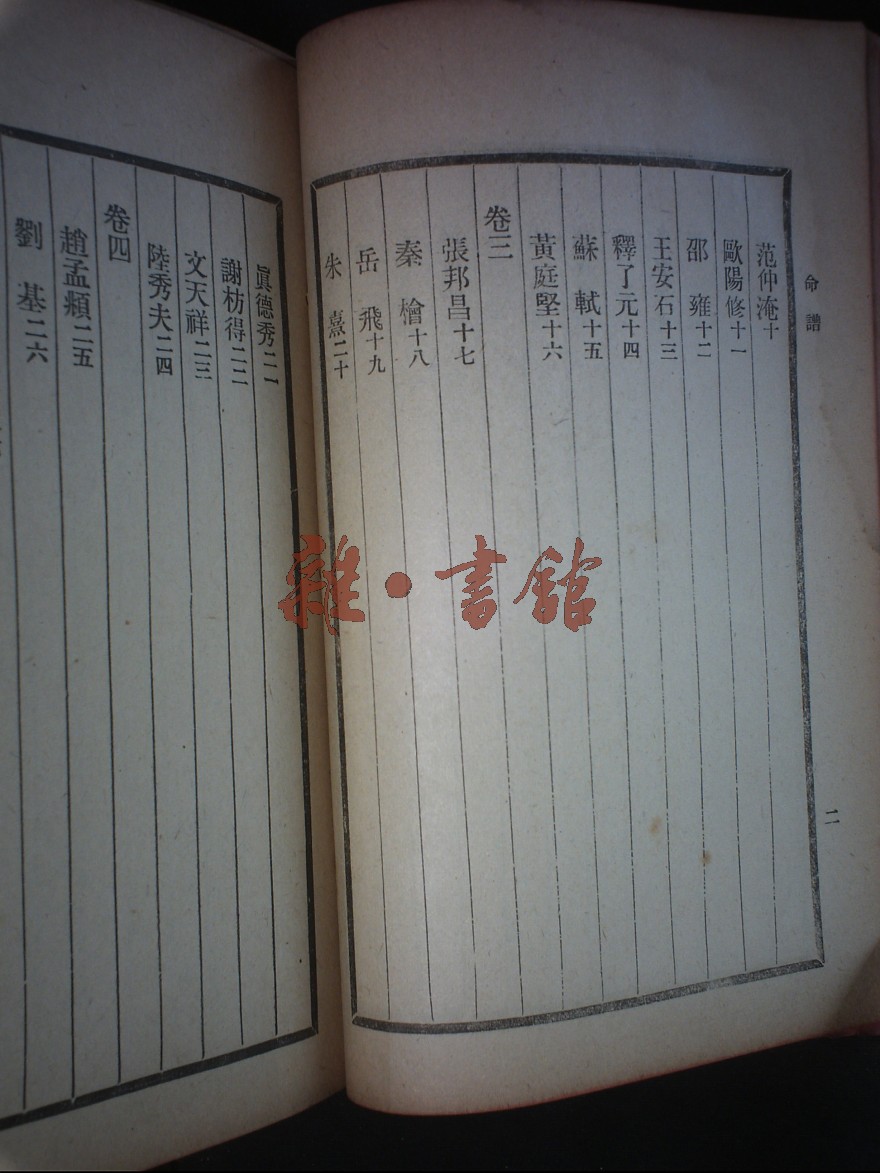 命譜
二
范仲淹十
歐陽修十一
邵雍十二
王安石十三
釋了元十四
蘇軾十五
黃庭堅十六
卷三
張邦昌十七
秦檜十八
岳飛十九
朱熹二十
眞德秀二一
謝枋得二二
文天祥二三
陸秀夫二四
卷四
趙孟頫二五
劉基二六
雜·書舘